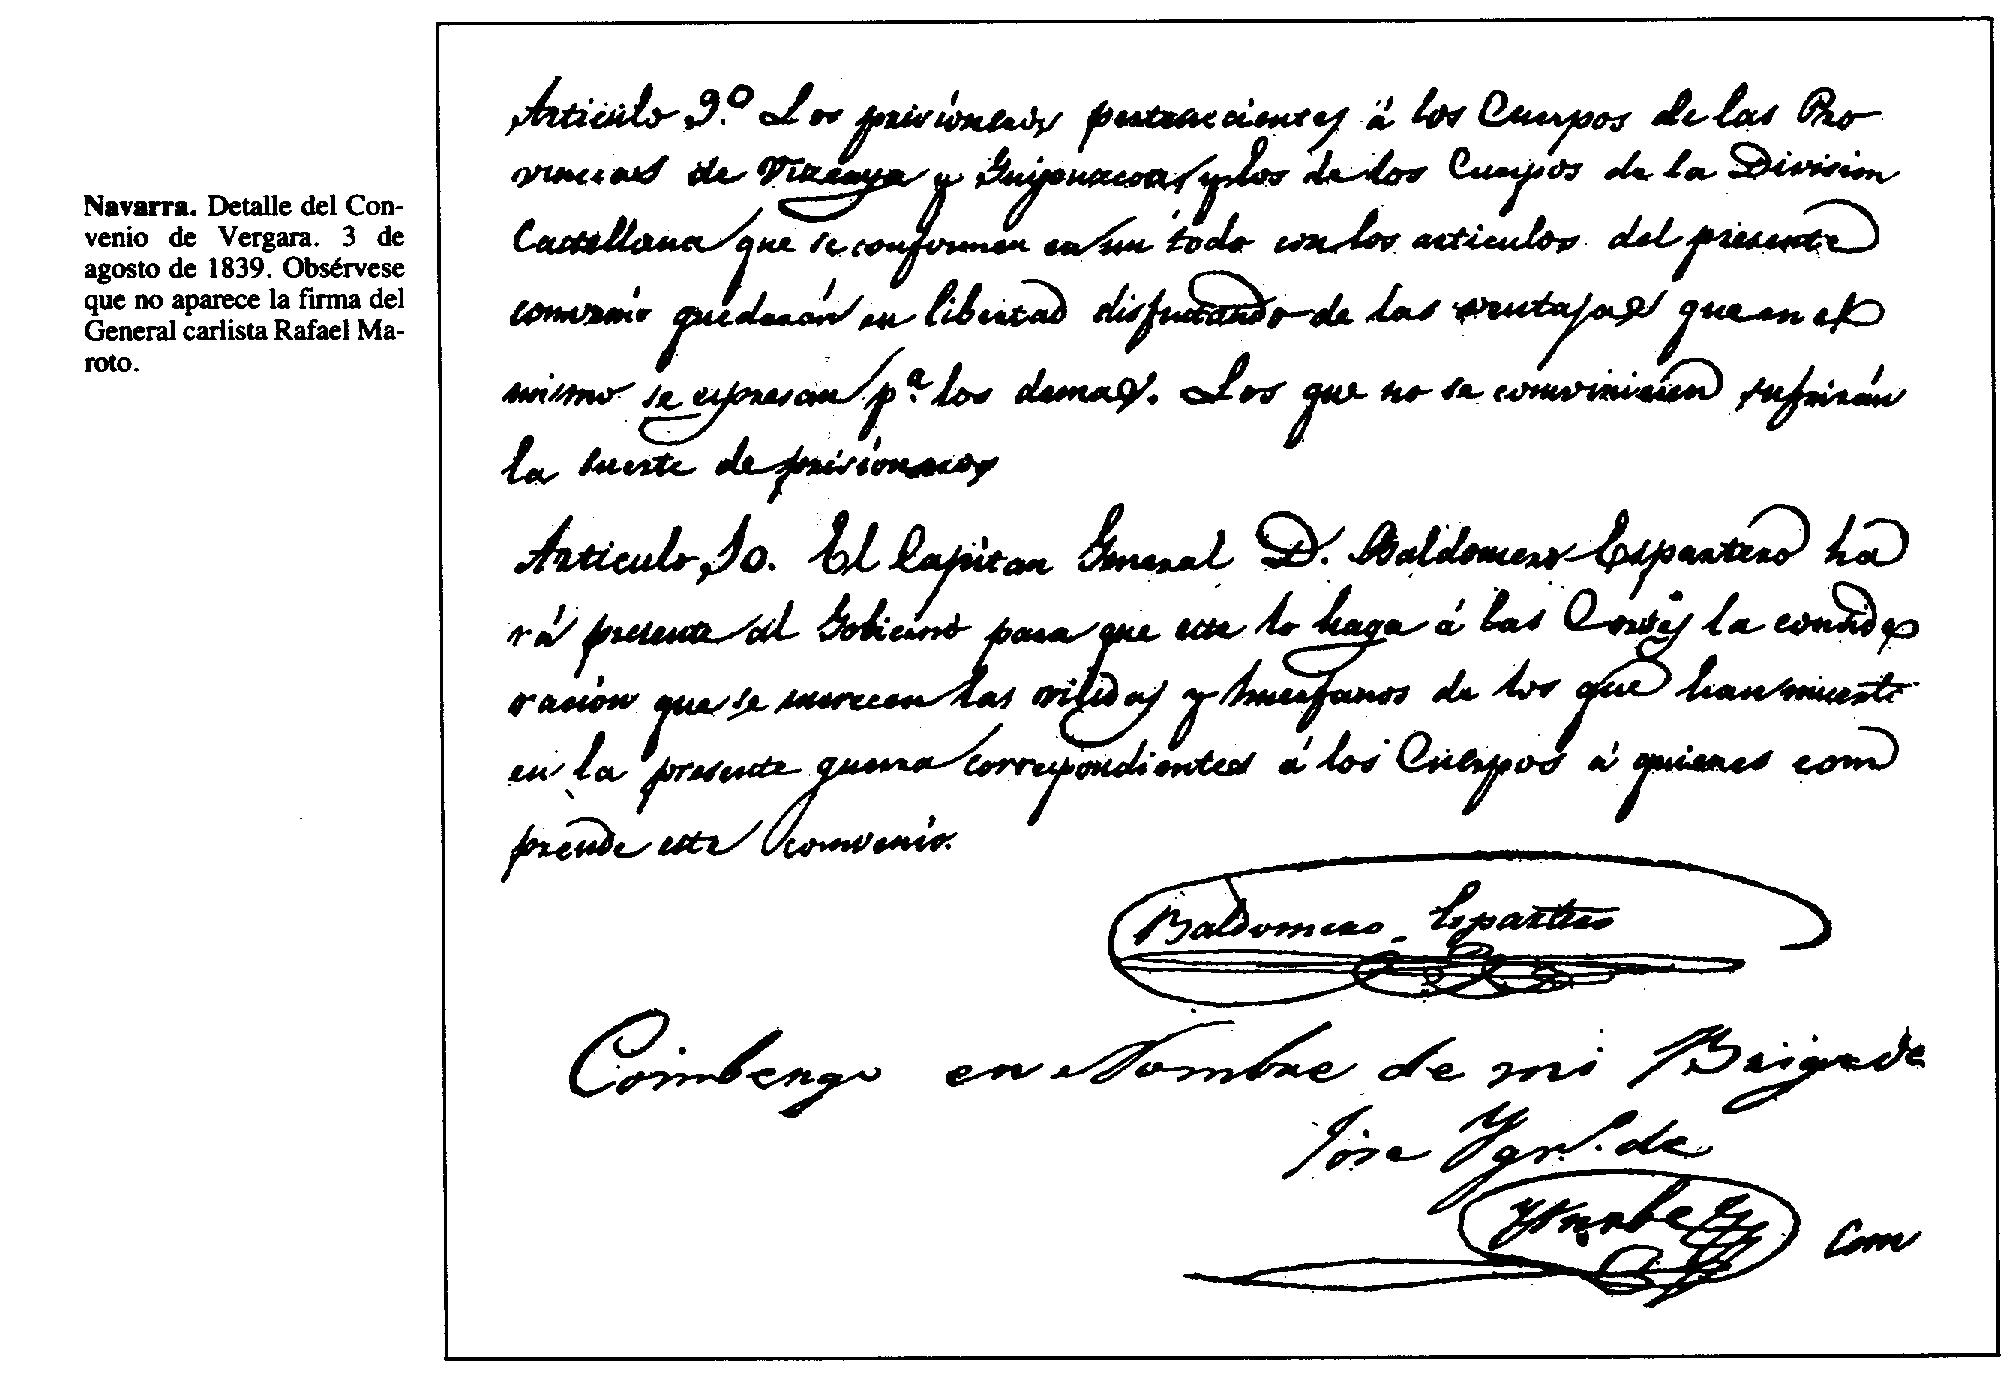 Navarra. Detalle del Con-
venio de Vergara. 3 de
agosto de 1839. Obsérvese
que no aparece la firma del
General carlista Rafael Ma-
roto.
Articulo 9.º Los prisioneros pertenecientes á los Cuerpos de las Pro
vincias de Vizcaya y Guipuzcoa, y los de los Cuerpos de la Division
Castellana que se conformen en un todo con los articulos del presente
convenio quedarán en libertad disfrutando de las ventajas que en el
mismo se expresan p.ª los demas. Los que no se convinieren sufrirán
la suerte de prisioneros
Articulo 10. El Capitan General D. Baldomero Espartero ha
rá presente al Gobierno para que este lo haga á las Cortes la conside
racion que se merecen las viudas y huerfanos de los que han muerto
en la presente guerra correspondientes á los Cuerpos á quienes com
prende este convenio.
Baldomero Espartero
Combengo en Nombre de mi Brigada
Jose Ygn.º de
Yturbe
Com